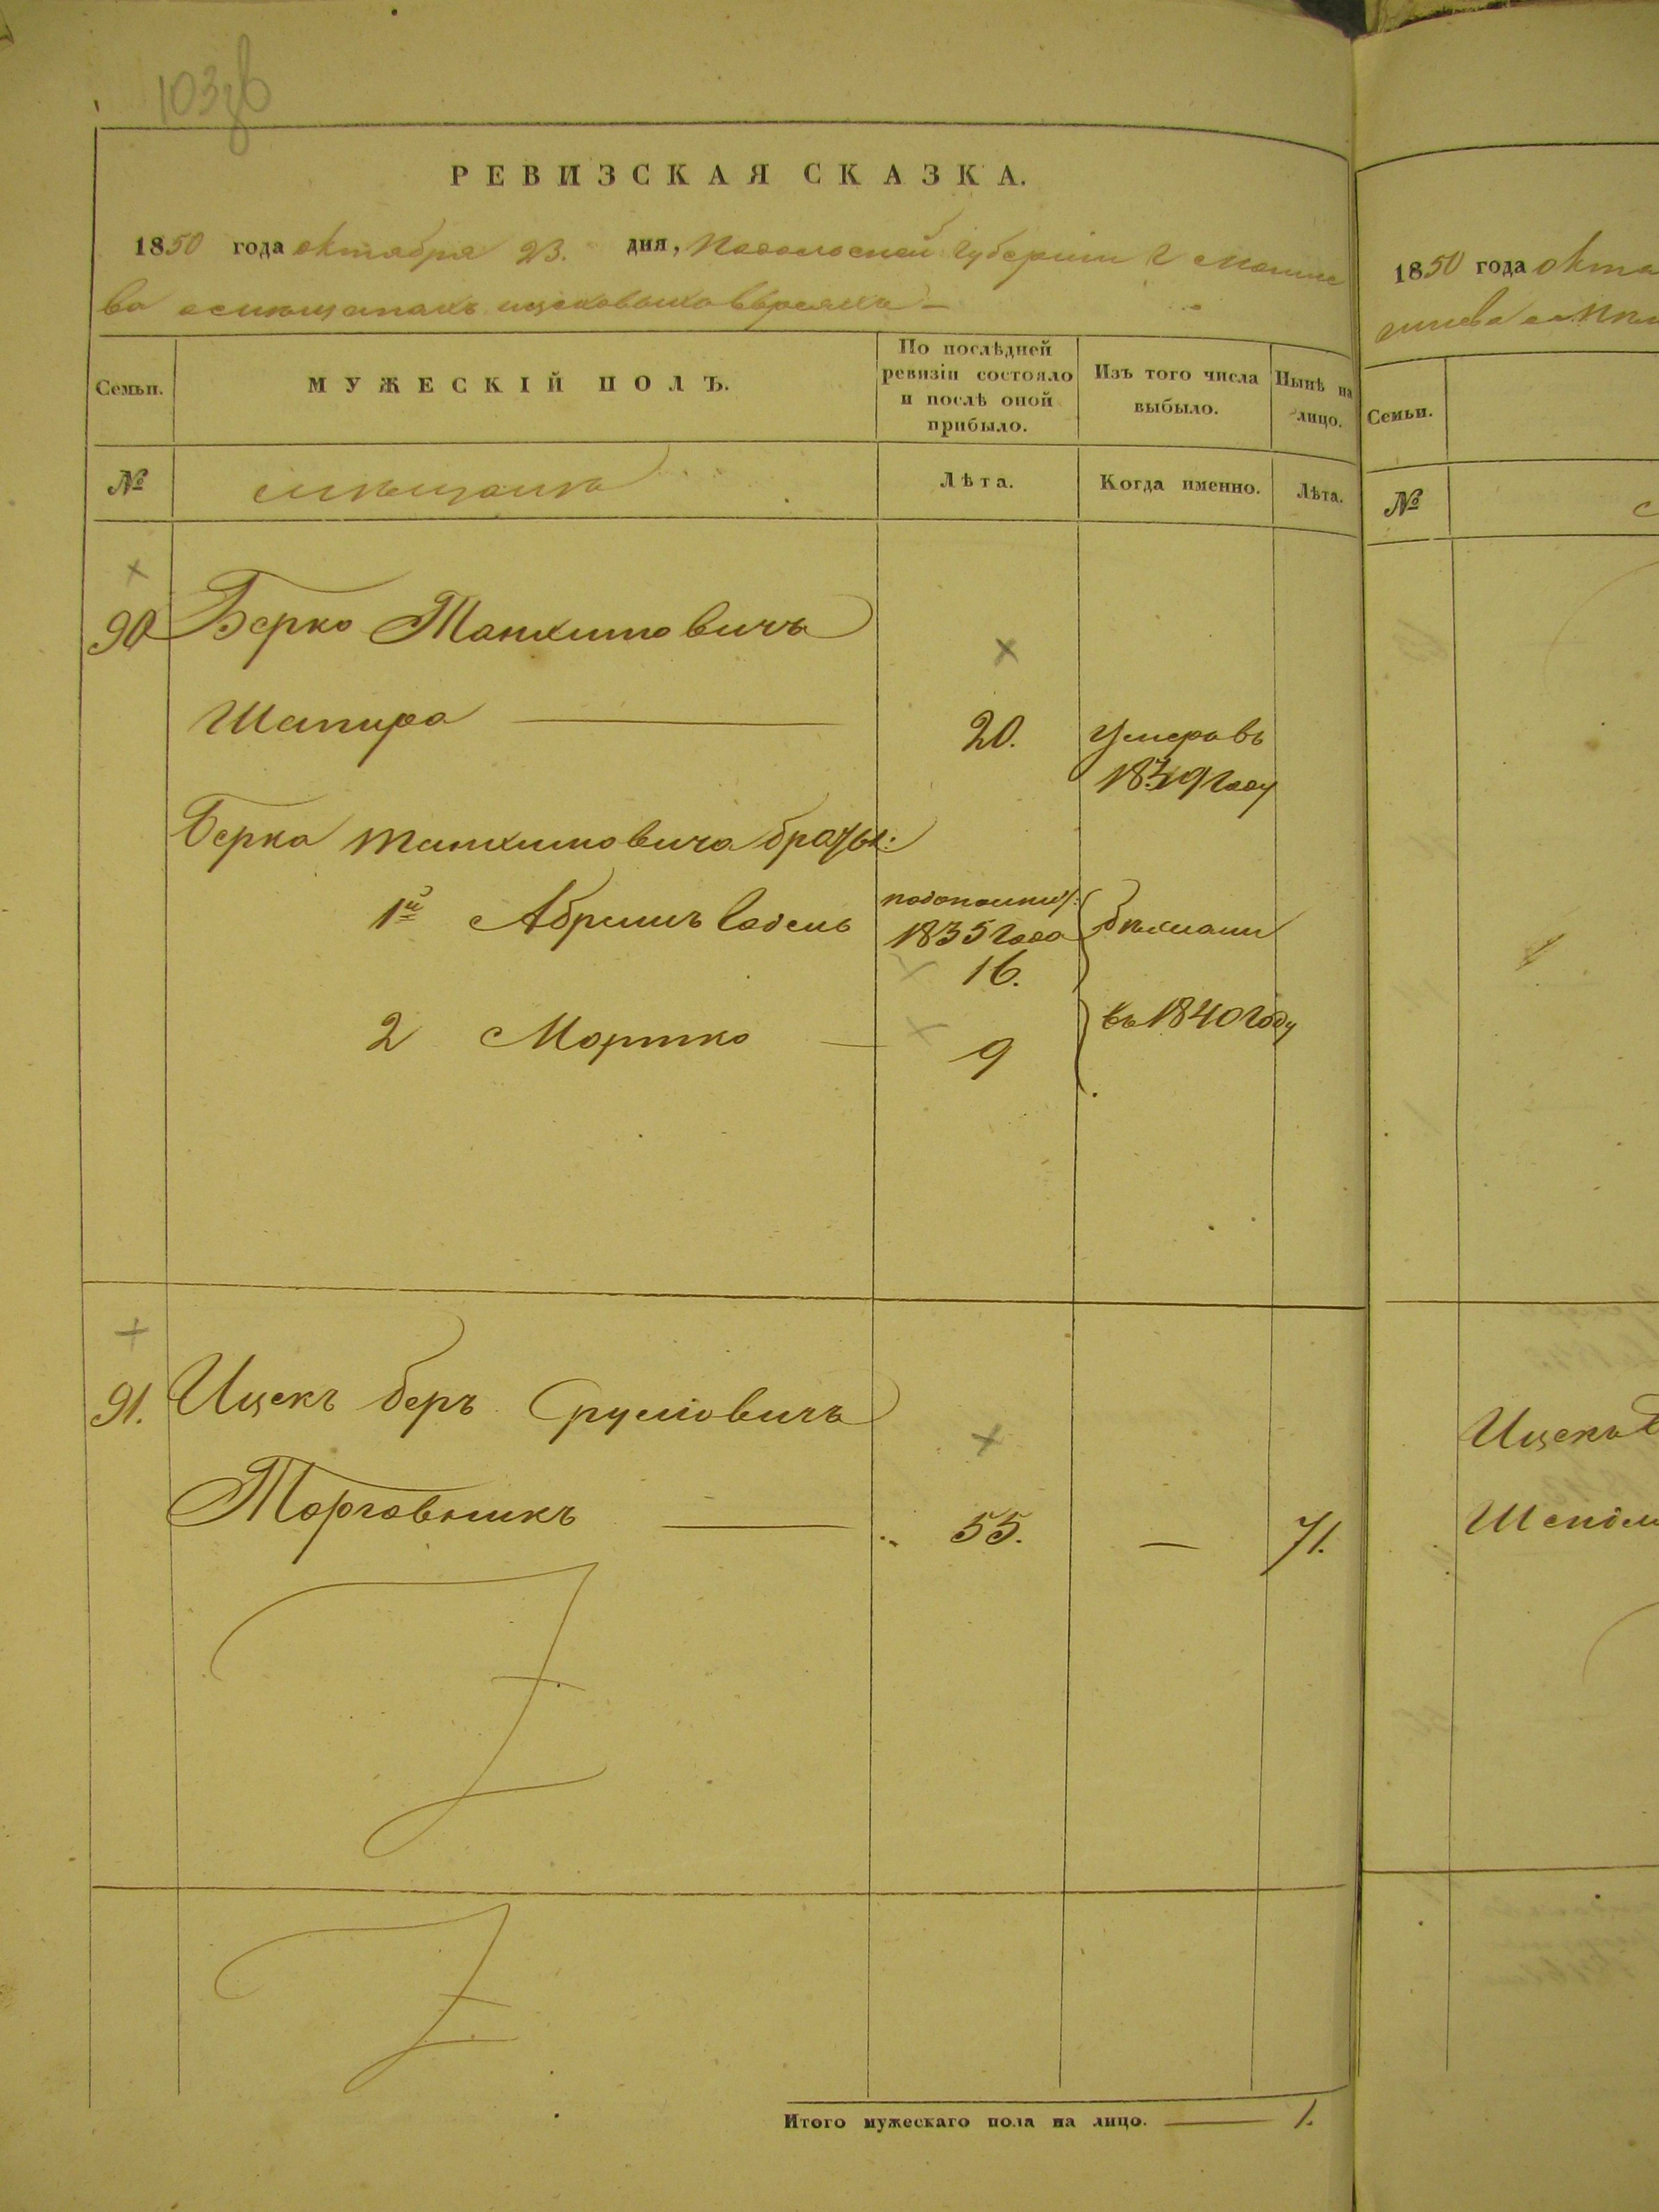 103зв
РЕВИЗСКАЯ СКАЗКА.
1850 года октября 23. дня, Подольской Губернии Г Могиле
ва о мещанахъ евреяхъ
Семьи.
МУЖЕСКІЙ ПОЛЪ.
По послѣдней
ревизіи состояло
и послѣ оной
прибыло.
Изъ того числа
выбыло.
Нынѣ на
лицо.
№
мещане
Лѣта.
Когда именно.
Лѣта.
90 Берко Танхимовичъ
Шапира — 20. умеръ въ
1839 году
Берка танхимовича братья:
1й Абрумъ Годель
1835 года
16.
бѣжали
2 Мортко — 9
въ 1840 году
91. Ицекъ беръ Срулiовичъ
Торговникъ — 55. — 71.
Итого мужескаго пола на лицо. — 1.
1850 года окта
Семьи.
№
Ицекъ